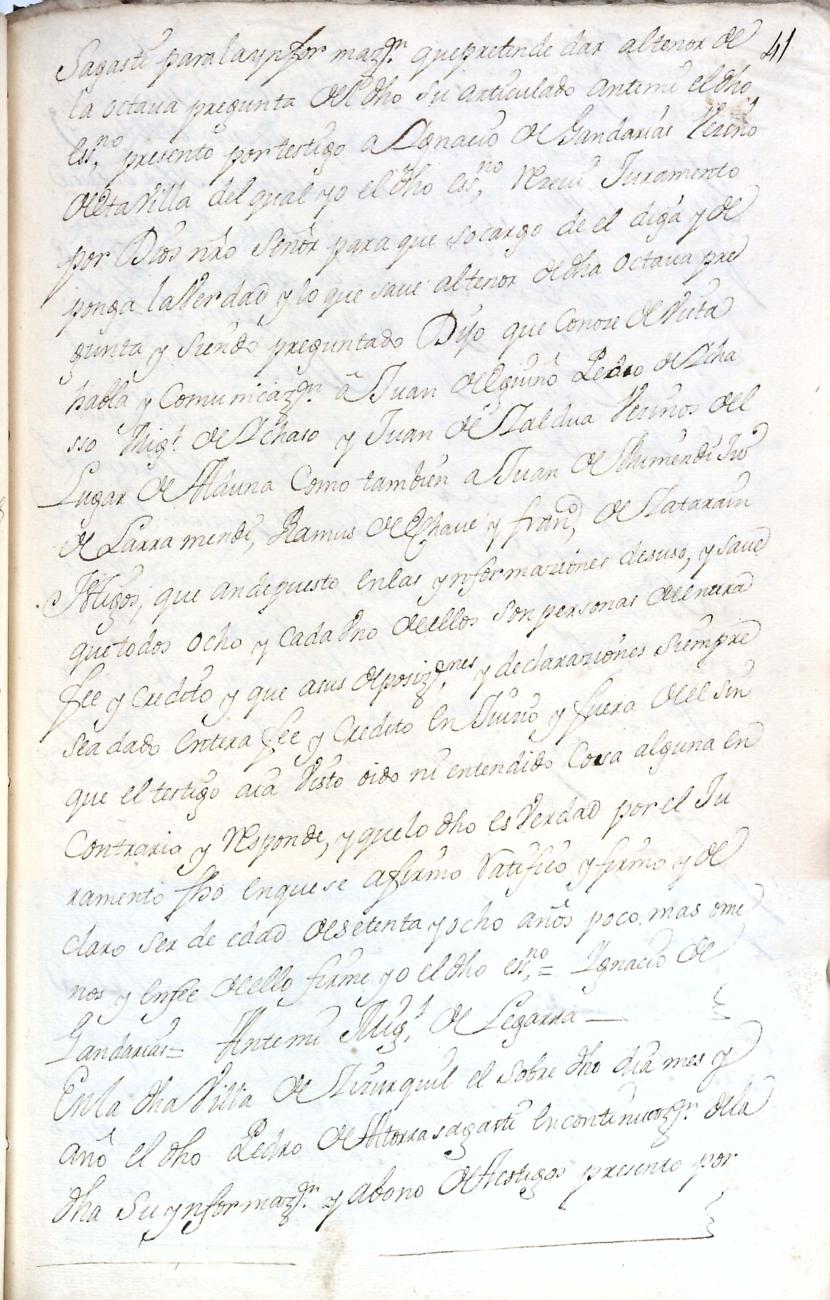 41
Sagasti para la ynformazn. que pretende dar altenor de
la octava pregunta del dho su articulado antemi el dho
essno. presento por testigo a Ygnacio de Gandarias Vecino
de esta Villa del qual yo el dho essno. Reciui Juramento
por Dios nro Señor para que so cargo de el diga y de
ponga la Verdad y lo que saue altenor de dha octava pre
gunta y siendo preguntado Dijo que Conoce de Vista
habla y Comunicazn. â Juan de Eguino Pedro de Acha
sso Migl. de Achaso y Juan de Zaldua Vecinos del
Lugar de Alduna Como tambien a Juan de Jhumendi Juo
de Larramendi, Ramus de Echaue y Franco. de Zatarain
testigos, que an depuesto enlas ynformaziones desuso, y saue
que todos ocho y Cada Vno de ellos son personas de entera
fee y Credito y que asus deposiziones. y declaraziones siempre
sea dado entera fee y Credito en Juicio y fuera de el sin
que el testigo aia Visto oido ni entendido Cosa alguna en
Contrario y Responde, y que lo dho es Verdad por el Ju
ramento fho enque se afirmo Ratifico y firmo y de
claro ser de edad de setenta y ocho años poco mas ome
nos y enfee de ello firme yo el dho essno. = Ygnacio de
Gandarias = Antemi Migl. de Legarra —
En la dha Villa de Aizurquil el sobre dho dia mes y
año el dho Pedro de Atorrasagasti en continuazn. de la
dha su ynformazn. y abono de testigos presento por